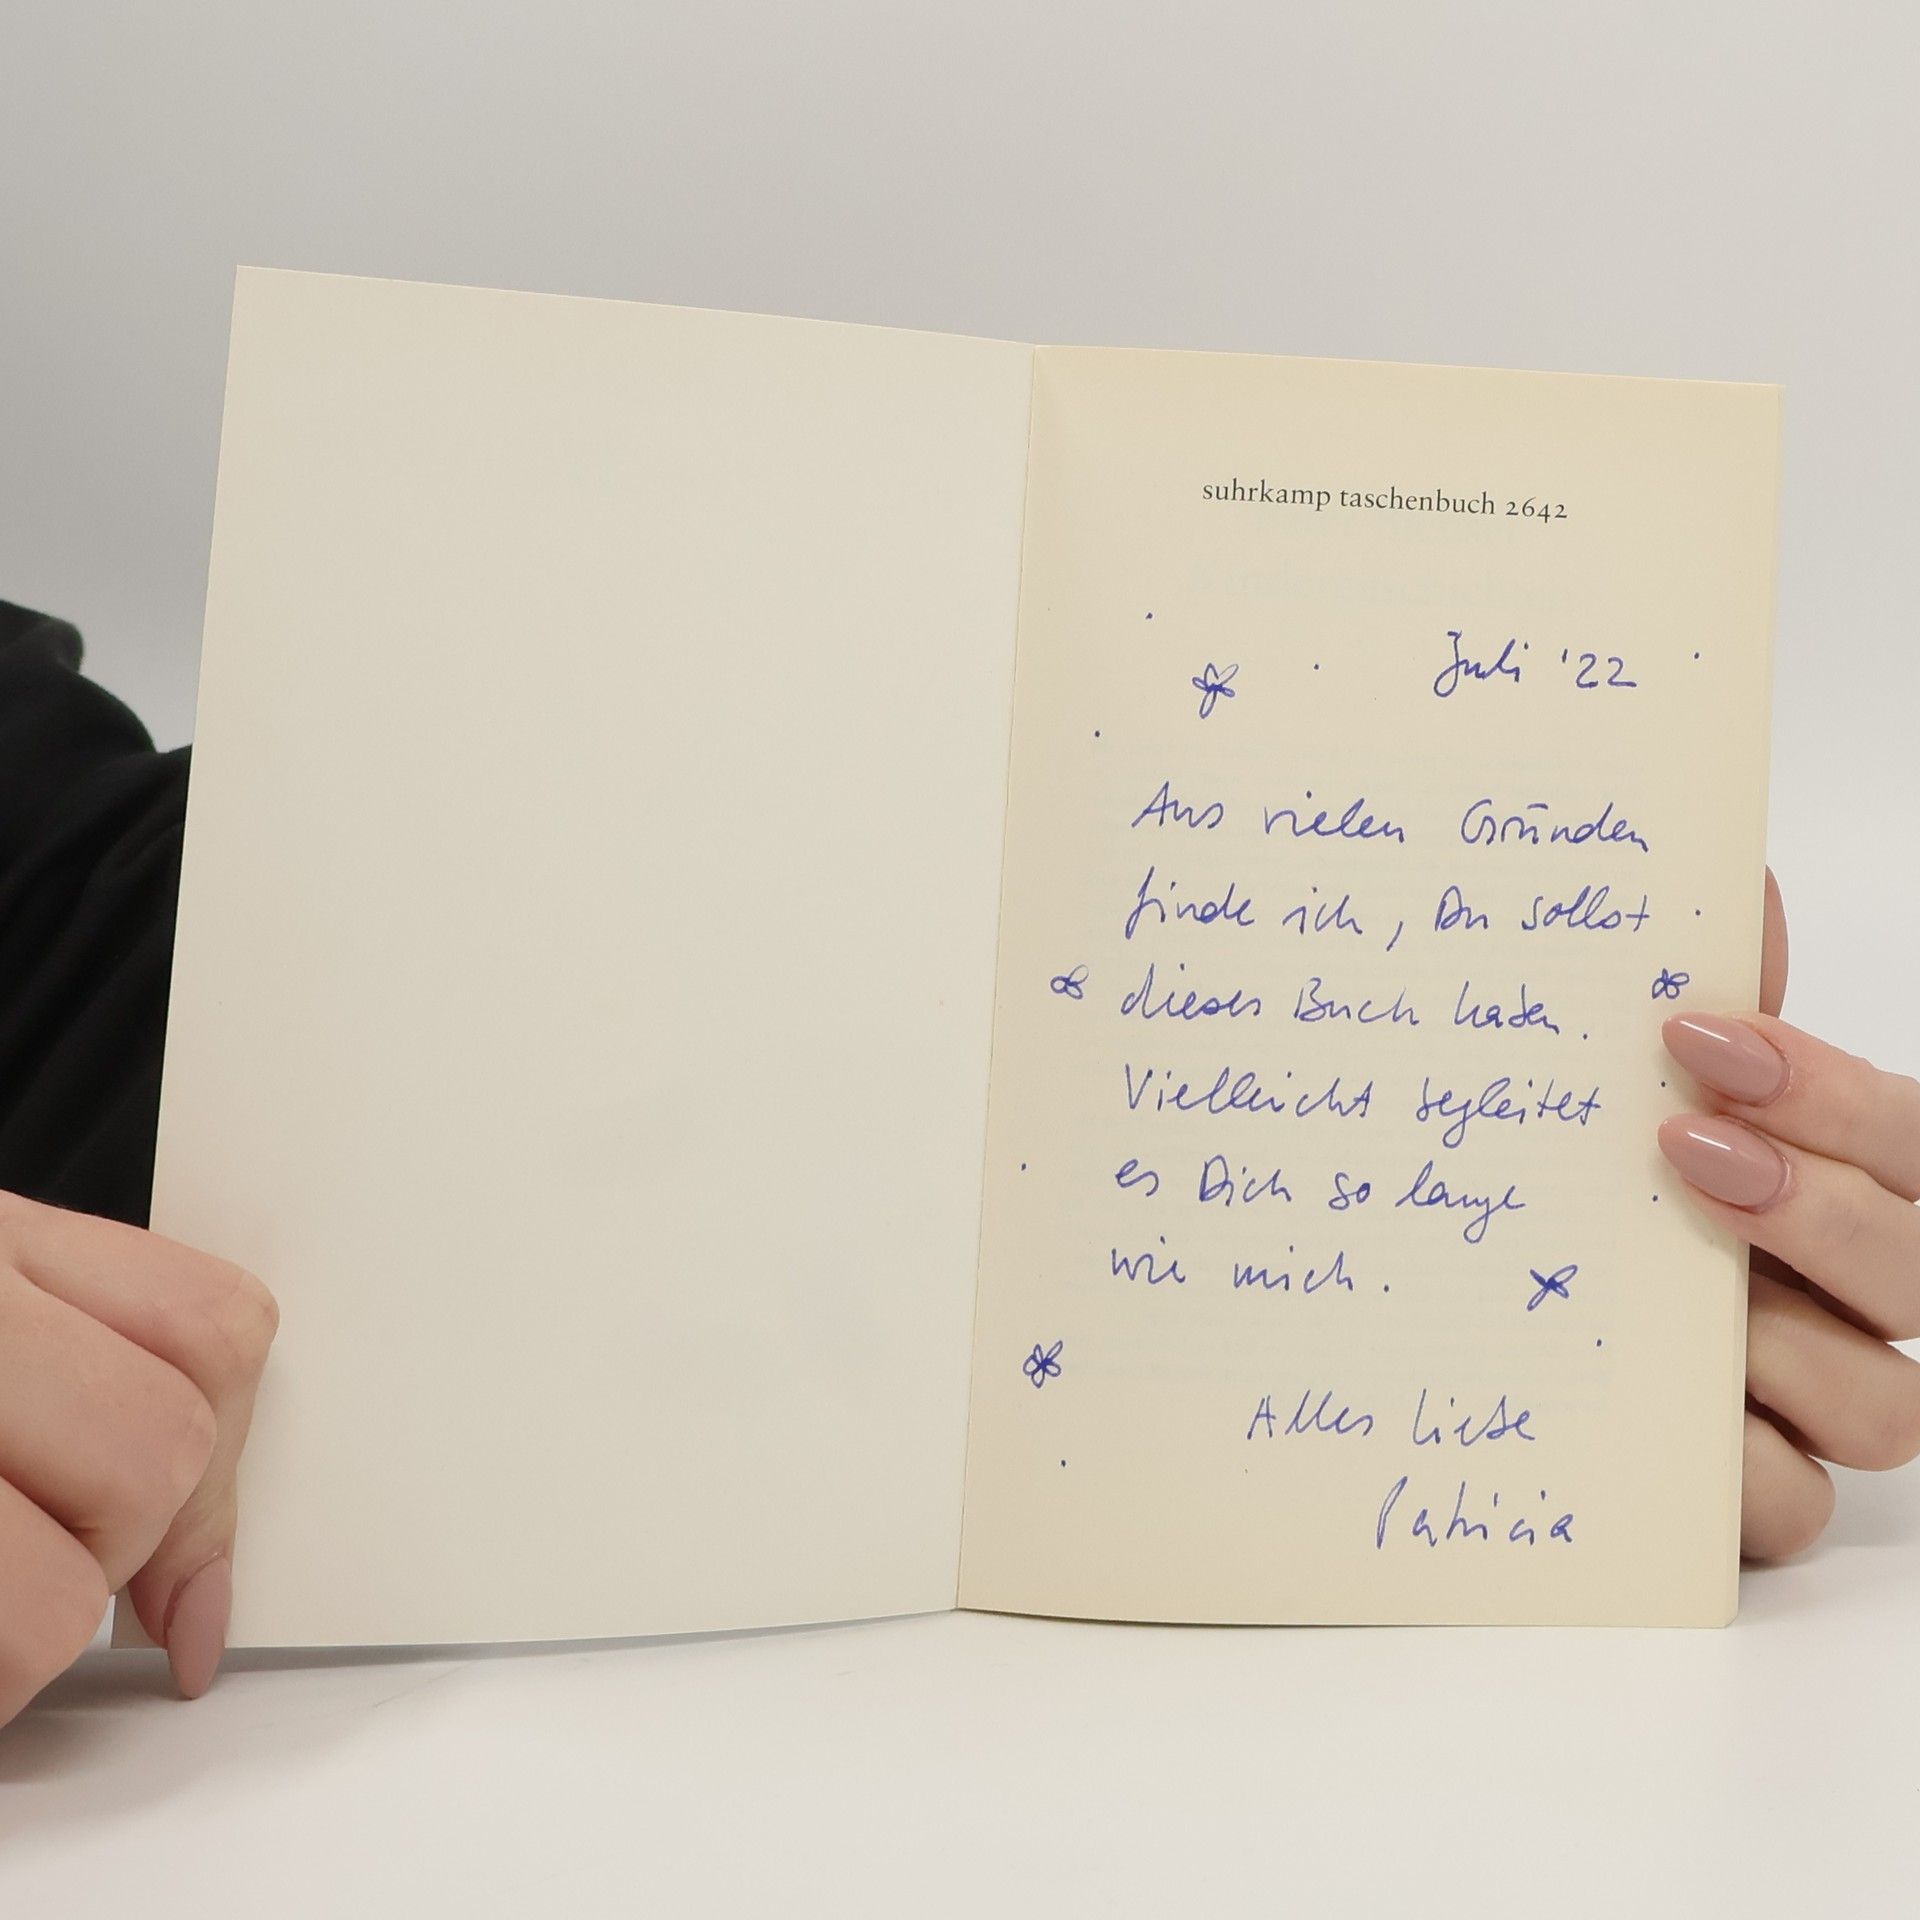 suhrkamp taschenbuch 2642
Juli '22
Aus vielen Gründen
finde ich, Du sollst
dieses Buch haben.
Vielleicht begleitet
es Dich so lange
wie mich.
Alles Liebe
Patricia